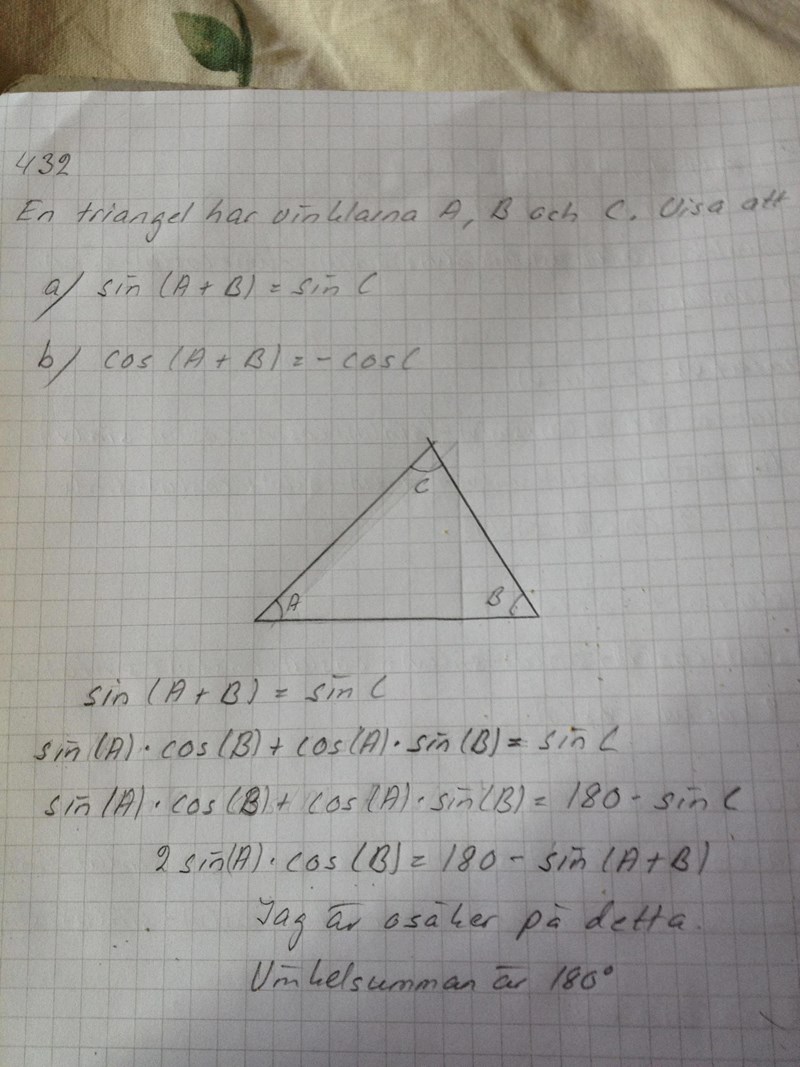 432
En triangel har vinklarna A, B och C. Visa att
a) sin (A + B) = sin C
b) cos (A + B) = - cos C
C
A
B
sin (A + B) = sin C
sin (A) · cos (B) + cos (A) · sin (B) = sin C
sin (A) · cos (B) + cos (A) · sin (B) = 180 - sin C
2 sin(A) · cos (B) = 180 - sin (A + B)
Jag är osäker på detta.
Vinkelsumman är 180°